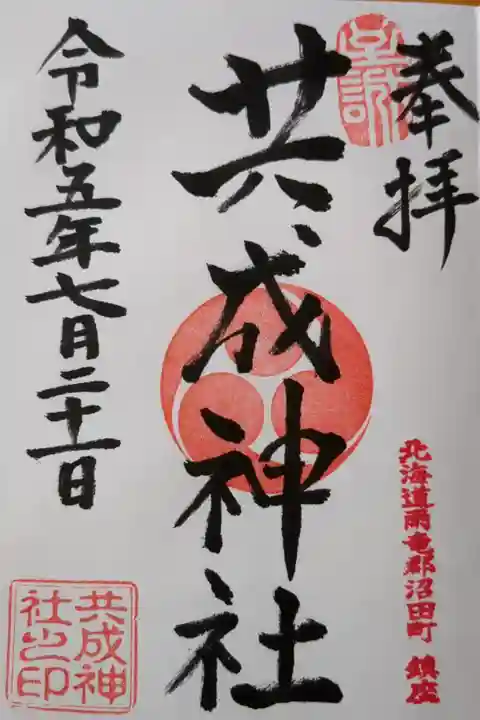 奉拝
至誠
北海道雨竜郡沼田町 鎮座
共成神社
令和五年七月二十一日
共成神
社之印